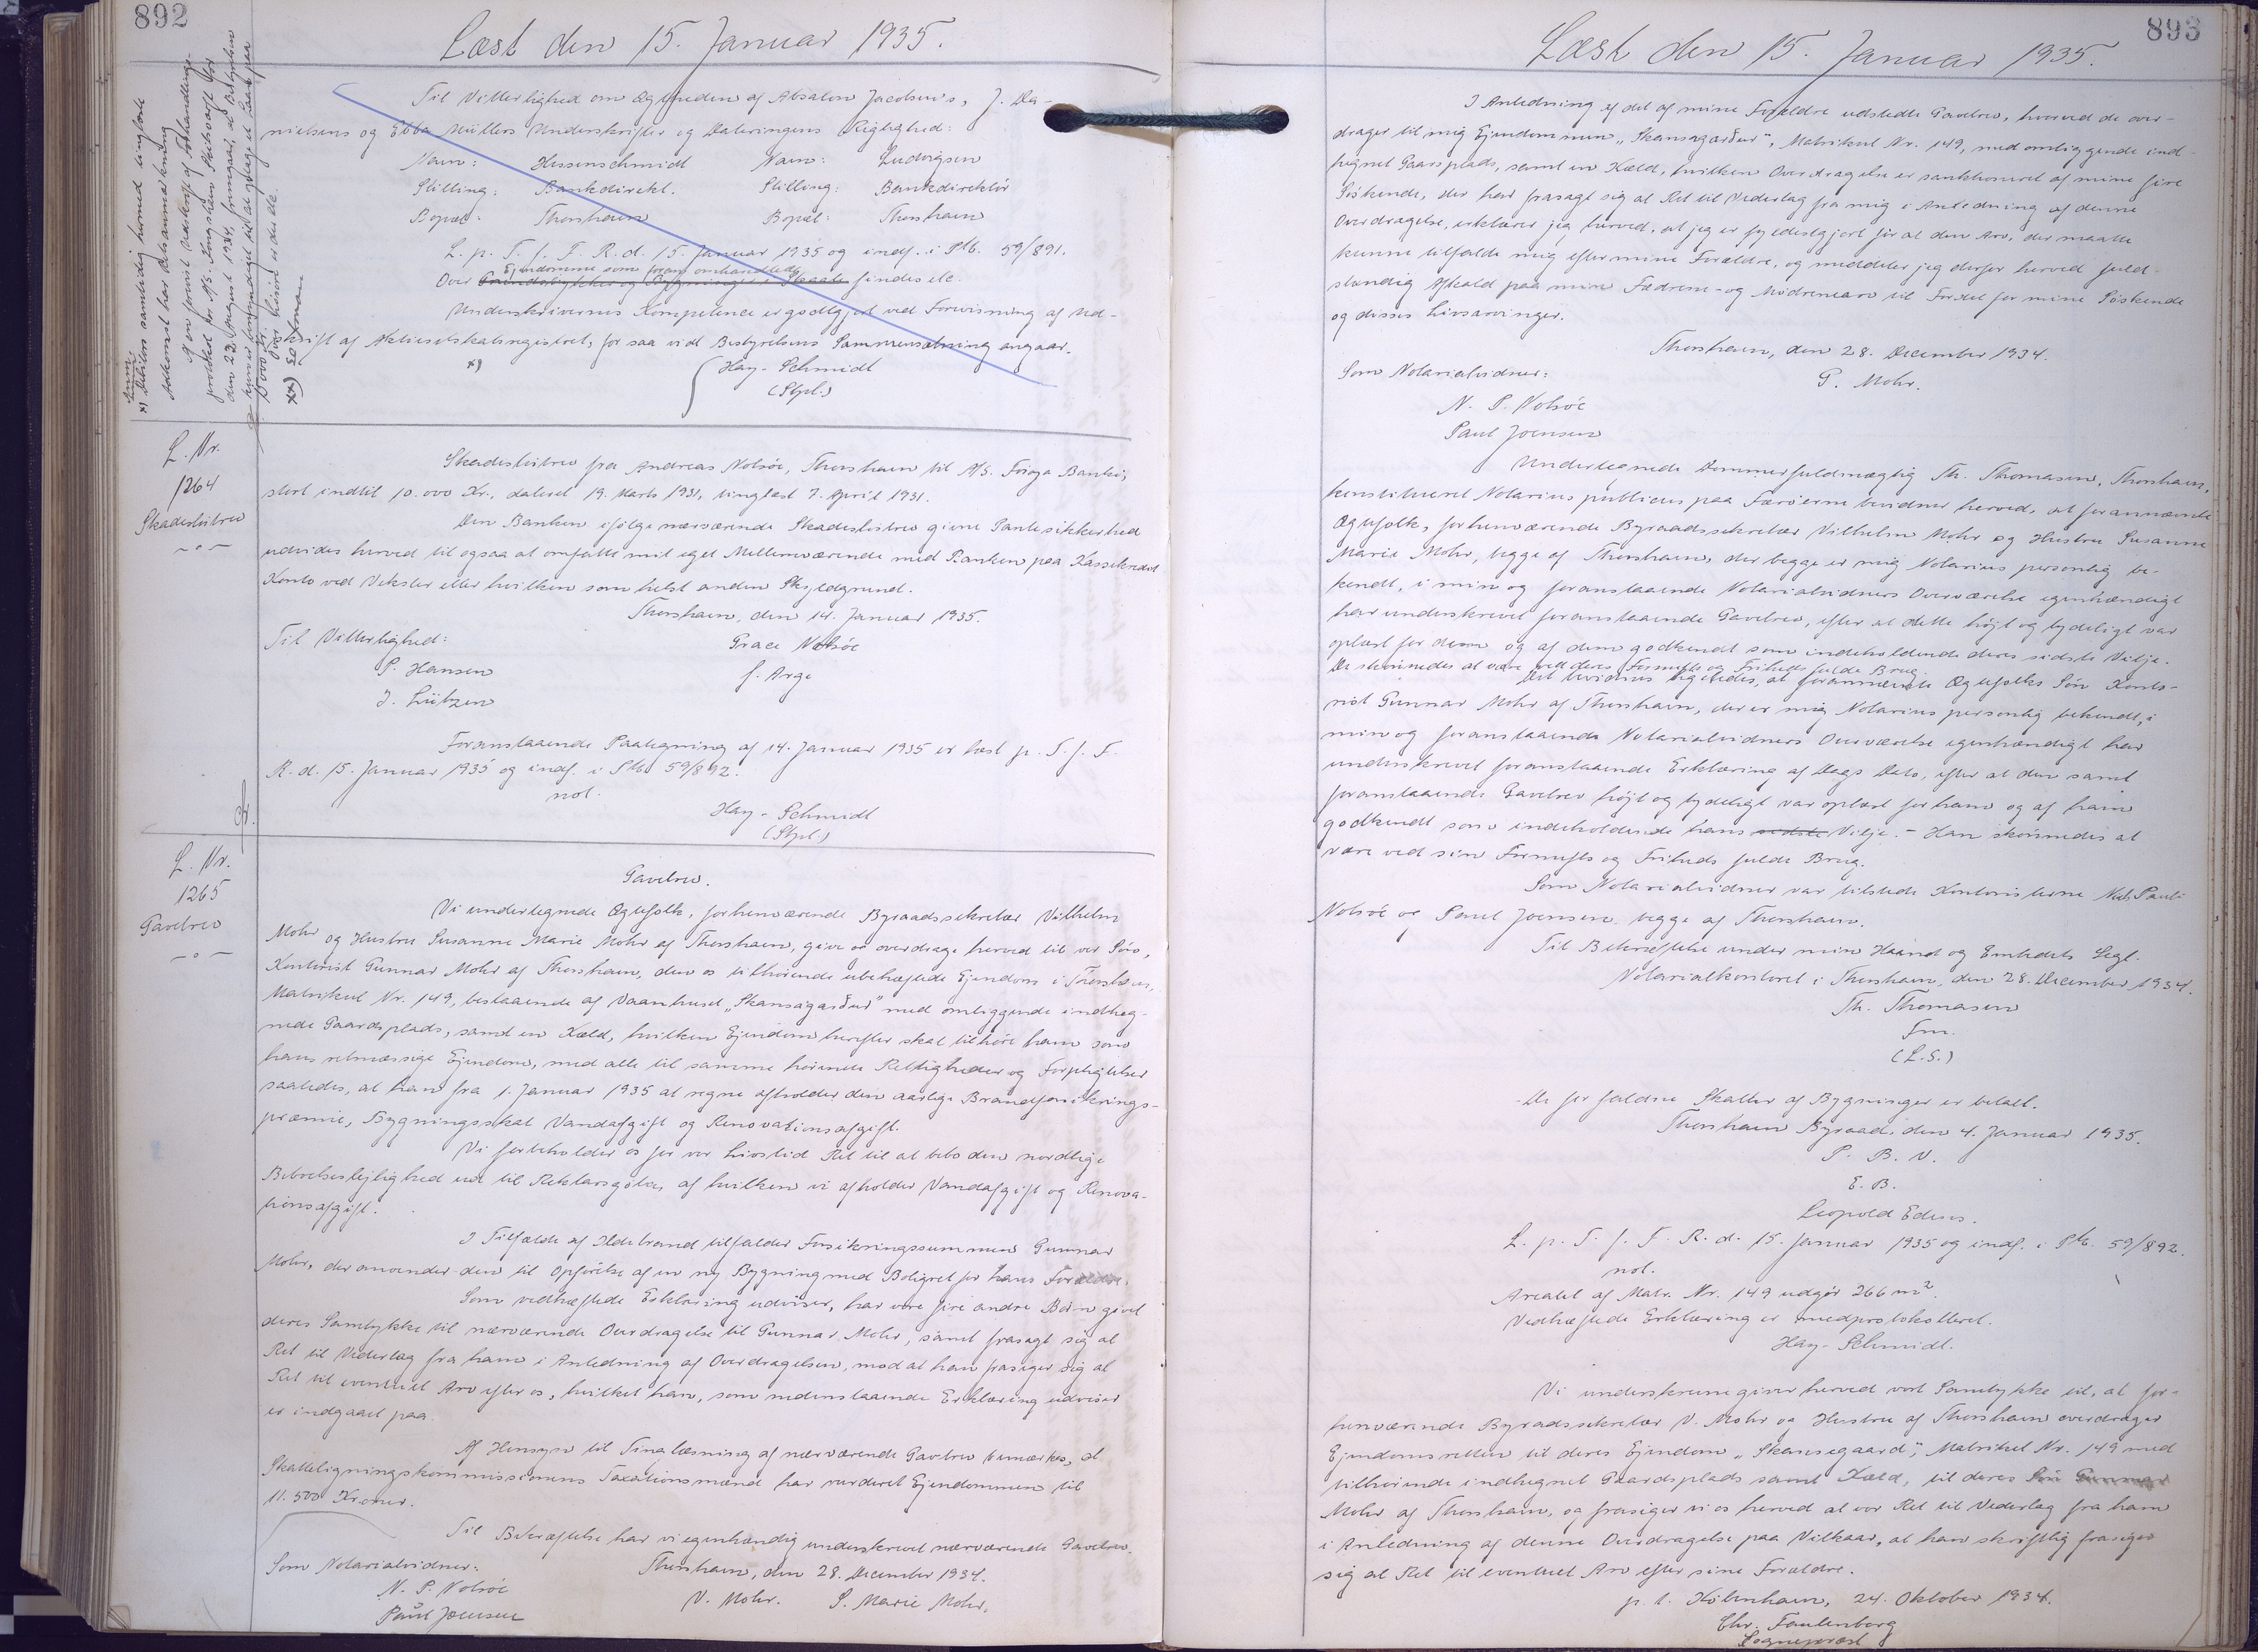 892
Læst den 15. Januar 1935.
Til Vitterlighed om Ægtheden af Absalon Jacobsen's, J. Da-
nielsens og Ebba Müllers Underskrifter og Dateringens Rigtighed:
Navn: Hessenschmidt Navn: Ludvigsen
Stilling: Bankdirekt. Stilling: Bankdirektör
Bopæl: Thorshavn Bopæl: Thorshavn
L. p. T. f. F. R. d. 15. Januar 1935 og indf. i Ptb. 59/891.
Ejendomme som foran omhandlede
Over findes etc.
Underskrivernes Kompetence er godtgjort ved Forevisning af Ud-
skrift af Aktieselskabsregistret, for saa vidt Bestyrelsens Sammensætning angaar.
x) Hay-Schmidt
(Stpl.)
L. Nr.
1264
Skadeslösbrev
Skadeslösbrev fra Andreas Nolsöe, Thorshavn til A/S. Föroya Banki,
stort indtil 10.000 Kr., dateret 19. Marts 1931, tinglæst 7. April 1931.
Den Banken ifölge nærværende Skadeslösbrev givne Pantesikkerhed
udvides herved til ogsaa at omfatte mit eget Mellemværende med Banken paa Kassekredit
Konto ved Veksler eller hvilken som helst anden Skyldgrund.
Thorshavn, den 14. Januar 1935.
Til Vitterlighed: Grace Nolsöe
P. Hansen f. Arge
J. Lützen
Foranstaaende Paategning af 14. Januar 1935 er læst p. T. f. F.
R. d. 15. Januar 1935 og indf. i Ptb 59/892.
not.
Hay-Schmidt
(Stpl.)
L. Nr.
1265
Gavebrev
Gavebrev.
Vi undertegnede Ægtefolk, forhenværende Byraadssekretær Vilhelm
Mohr og Hustru Susanne Marie Mohr af Thorshavn, give og overdrage herved til vor Sön,
Kontorist Gunnar Mohr af Thorshavn, den os tilhörende ubehæftede Ejendom i Thorshavn,
Matrikul Nr. 149, bestaaende af Vaanhuset „Skansagarður" med omliggende indheg-
nede Gaardsplads, samt en Kæld, hvilken Ejendom herefter skal tilhöre ham som
hans retmæssige Ejendom, med alle til samme hörende Rettigheder og Forpligtelser
saaledes, at han fra 1. Januar 1935 at regne afholder den aarlige Brandforsikrings-
præmie, Bygningsskat Vandafgift og Renovationsafgift.
Vi forbeholder os for vor Livstid Ret til at bebo den nordlige
Beboelseslejlighed ud til Rektaragöta, af hvilken vi afholder Vandafgift og Renova-
tionsafgift.
I Tilfælde af Ildebrand tilfalder Forsikringssummen Gunnar
Mohr, der anvender den til Opförelse af en ny Bygning med Boligret for hans Forældre.
Som vedhæftede Erklæring udviser, har vore fire andre Börn givet
deres Samtykke til nærværende Overdragelse til Gunnar Mohr, samt frasagt sig al
Ret til Vederlag fra ham i Anledning af Overdragelsen, mod at han frasiger sig al
Ret til eventuel Arv efter os, hvilket han, som nedenstaaende Erklæring udviser
er indgaaet paa.
Af Hensyn til Tinglæsning af nærværende Gavebrev bemærkes, at
Skatteligningskommissionens Taxationsmænd har vurderet Ejendommen til
11.500 Kroner.
Til Bekræftelse har vi egenhændig underskrevet nærværende Gavebrev.
Som Notarialvidner: Thorshavn, den 28. December 1934.
N. P. Nolsöe V. Mohr. S. Marie Mohr.
Paul Joensen
893
Læst den 15. Januar 1935.
I Anledning af det af mine Forældre udstedte Gavebrev, hvorved de over-
drager til mig Ejendommen „Skansagarður", Matrikul Nr. 149, med omliggende ind-
hegnet Gaardsplads, samt en Kæld, hvilken Overdragelse er sanktioneret af mine fire
Söskende, der har frasagt sig al Ret til Vederlag fra mig i Anledning af denne
Overdragelse, erklærer jeg herved, at jeg er fyldestgjort for al den Arv, der maatte
kunne tilfalde mig efter mine Forældre, og meddeler jeg derfor herved fuld-
stændig Afkald paa min Fædrene- og Mödrenearv til Fordel for mine Söskende
og disses Livsarvinger.
Thorshavn, den 28. December 1934.
Som Notarialvidner: G. Mohr.
N. P. Nolsöe
Paul Joensen
Undertegnede Dommerfuldmægtig Th. Thomasen, Thorshavn,
konstitueret Notarius publicus paa Færöerne bevidner herved, at forannævnte
Ægtefolk, forhenværende Byraadssekretær Vilhelm Mohr og Hustru Susanne
Marie Mohr, begge af Thorshavn, der begge er mig Notarius personlig be-
kendt, i min og foranstaaende Notarialvidners Overværelse egenhændigt
har underskrevet foranstaaende Gavebrev, efter at dette höjt og tydeligt var
oplæst for dem og af dem godkendt som indeholdende deres sidste Vilje.
De skönnedes at være ved deres Fornufts og Friheds fulde Brug.
Det bevidnes ligeledes, at forannævnte Ægtefolks Sön Konto-
rist Gunnar Mohr af Thorshavn, der er mig Notarius personlig bekendt, i
min og foranstaaende Notarialvidners Overværelse egenhændigt har
underskrevet foranstaaende Erklæring af Dags Dato, efter at den samt
foranstaaende Gavebrev höjt og tydeligt var oplæst for ham og af ham
godkendt som indeholdende hans sidste Vilje. - Han skönnedes at
være ved sin Fornufts og Friheds fulde Brug.
Som Notarialvidner var tilstede Kontoristerne Niels Pauli
Nolsöe og Paul Joensen begge af Thorshavn.
Til Bekræftelse under min Haand og Embedets Segl.
Notarialkontoret i Thorshavn, den 28. December 1934.
Th. Thomasen
Fm.
(L.S.)
De forfaldne Skatter af Bygninger er betalt.
Thorshavn Byraad, den 4. Januar 1935.
P. B. V.
E. B.
Leopold
L. p. T. f. F. R. d. 15. Januar 1935 og indf. i Ptb. 59/892.
not.
Arealet af Matr. Nr. 149 udgör 266 m².
Vedhæftede Erklæring er medprotokolleret.
Hay-Schmidt.
Vi underskrevne giver herved vort Samtykke til, at for-
henværende Byraadssekretær V. Mohr og Hustru af Thorshavn overdrager
Ejendomsretten til deres Ejendom „Skansegaard", Matrikel Nr. 149 med
tilhörende indhegnet Gaardsplads samt Kæld, til deres Sön Gunnar
Mohr af Thorshavn, og frasiger vi os herved al vor Ret til Vederlag fra ham
i Anledning af denne Overdragelse paa Vilkaar, at han skriftlig frasiger
sig al Ret til eventuel Arv efter sine Forældre.
p. t. Köbenhavn, 24. Oktober 1934.
Chr.
Sognepræst